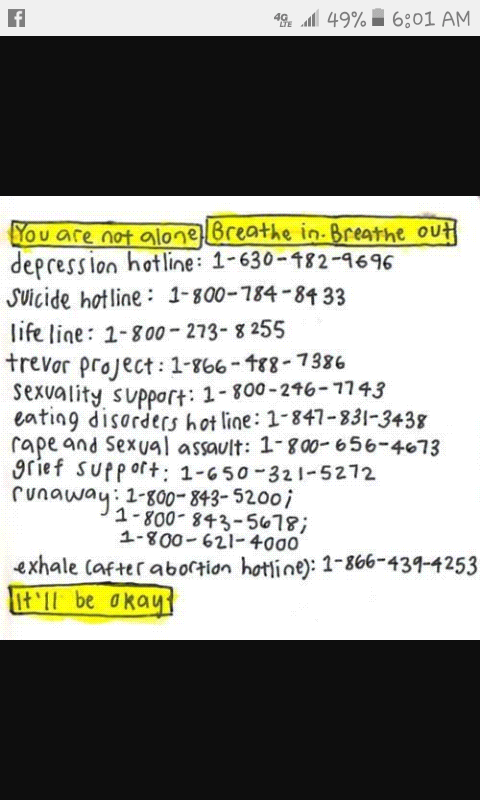 f 4G LTE 49% 6:01 AM
You are not alone. Breathe in. Breathe out
depression hotline: 1-630-482-9696
suicide hotline: 1-800-784-8433
lifeline: 1-800-273-8255
trevor project: 1-866-488-7386
sexuality support: 1-800-246-7743
eating disorders hotline: 1-847-831-3438
rape and sexual assault: 1-800-656-4673
grief support: 1-650-321-5272
runaway: 1-800-843-5200;
1-800-843-5678;
1-800-621-4000
exhale (after abortion hotline): 1-866-439-4253
It'll be okay